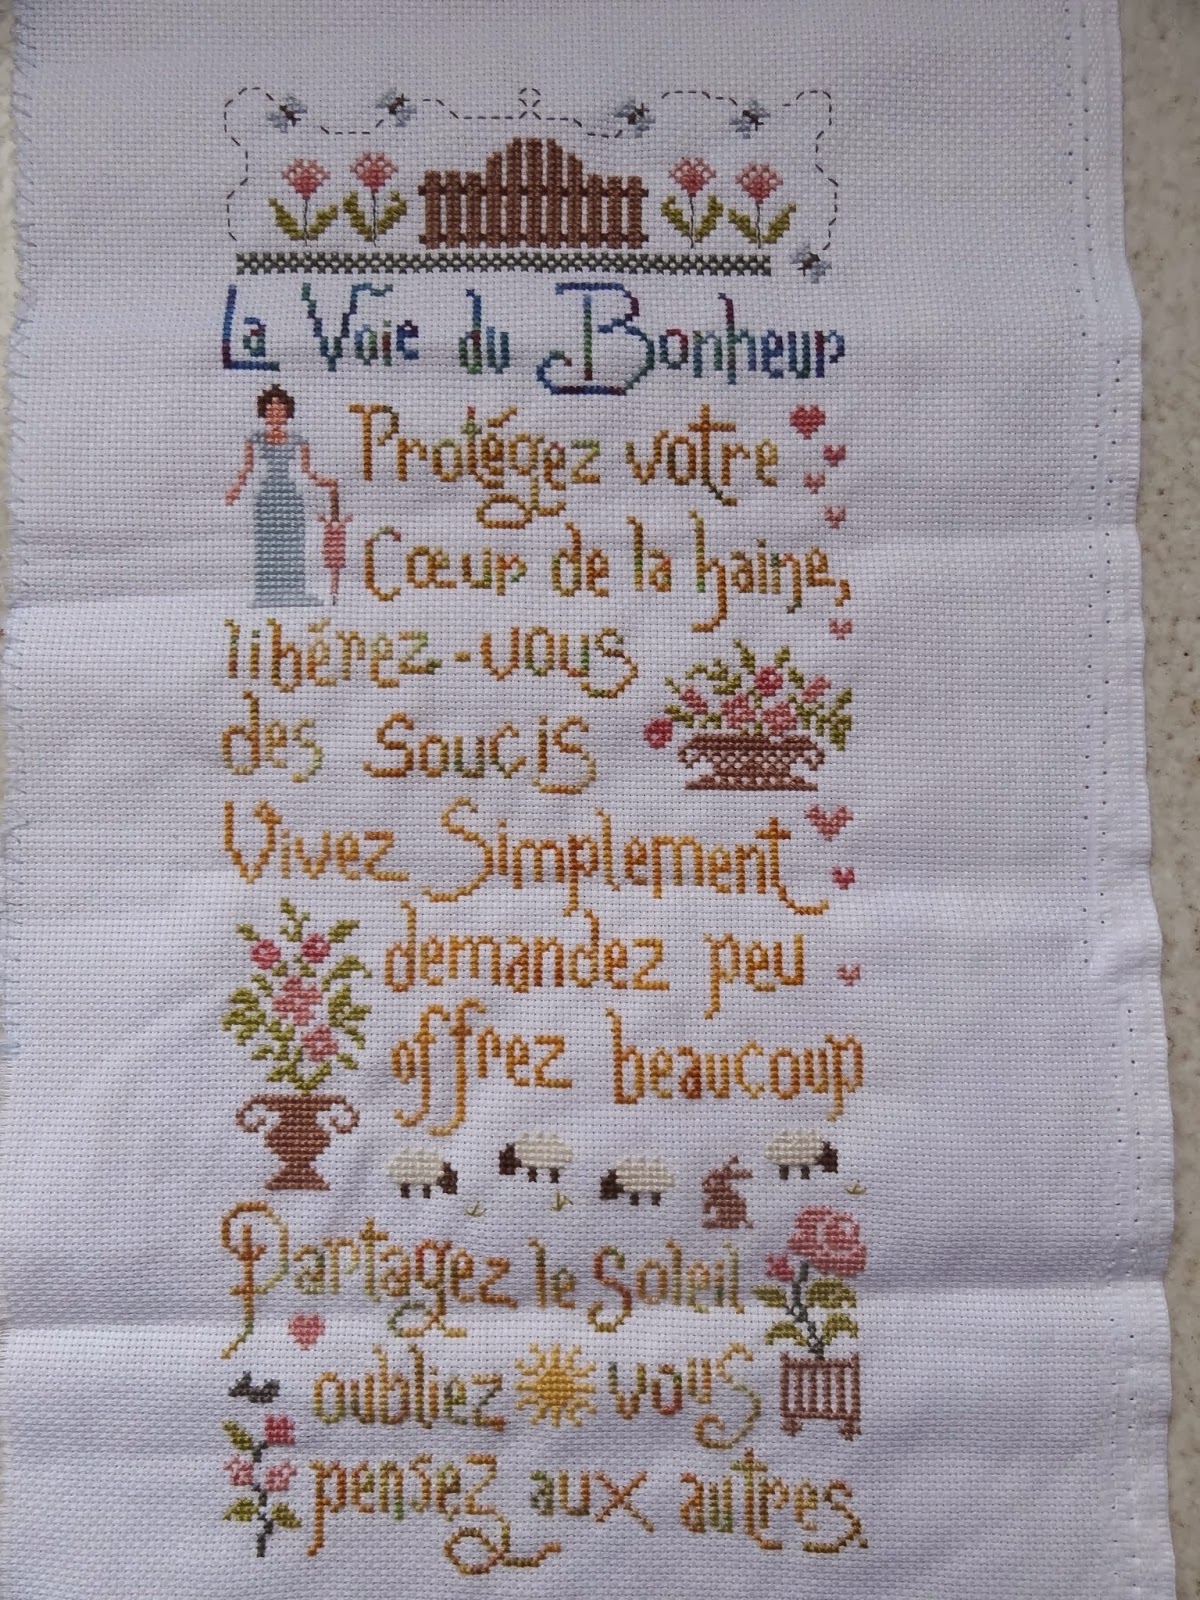 La Voie du Bonheur
Protégez votre
Cœur de la haine,
libérez-vous
des soucis
Vivez Simplement
demandez peu
offrez beaucoup
Partagez le Soleil
oubliez vous
pensez aux autres.